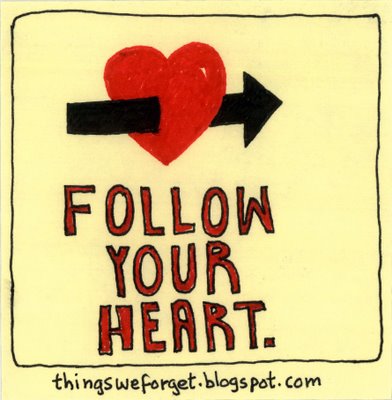 FOLLOW
YOUR
HEART.
thingsweforget.blogspot.com